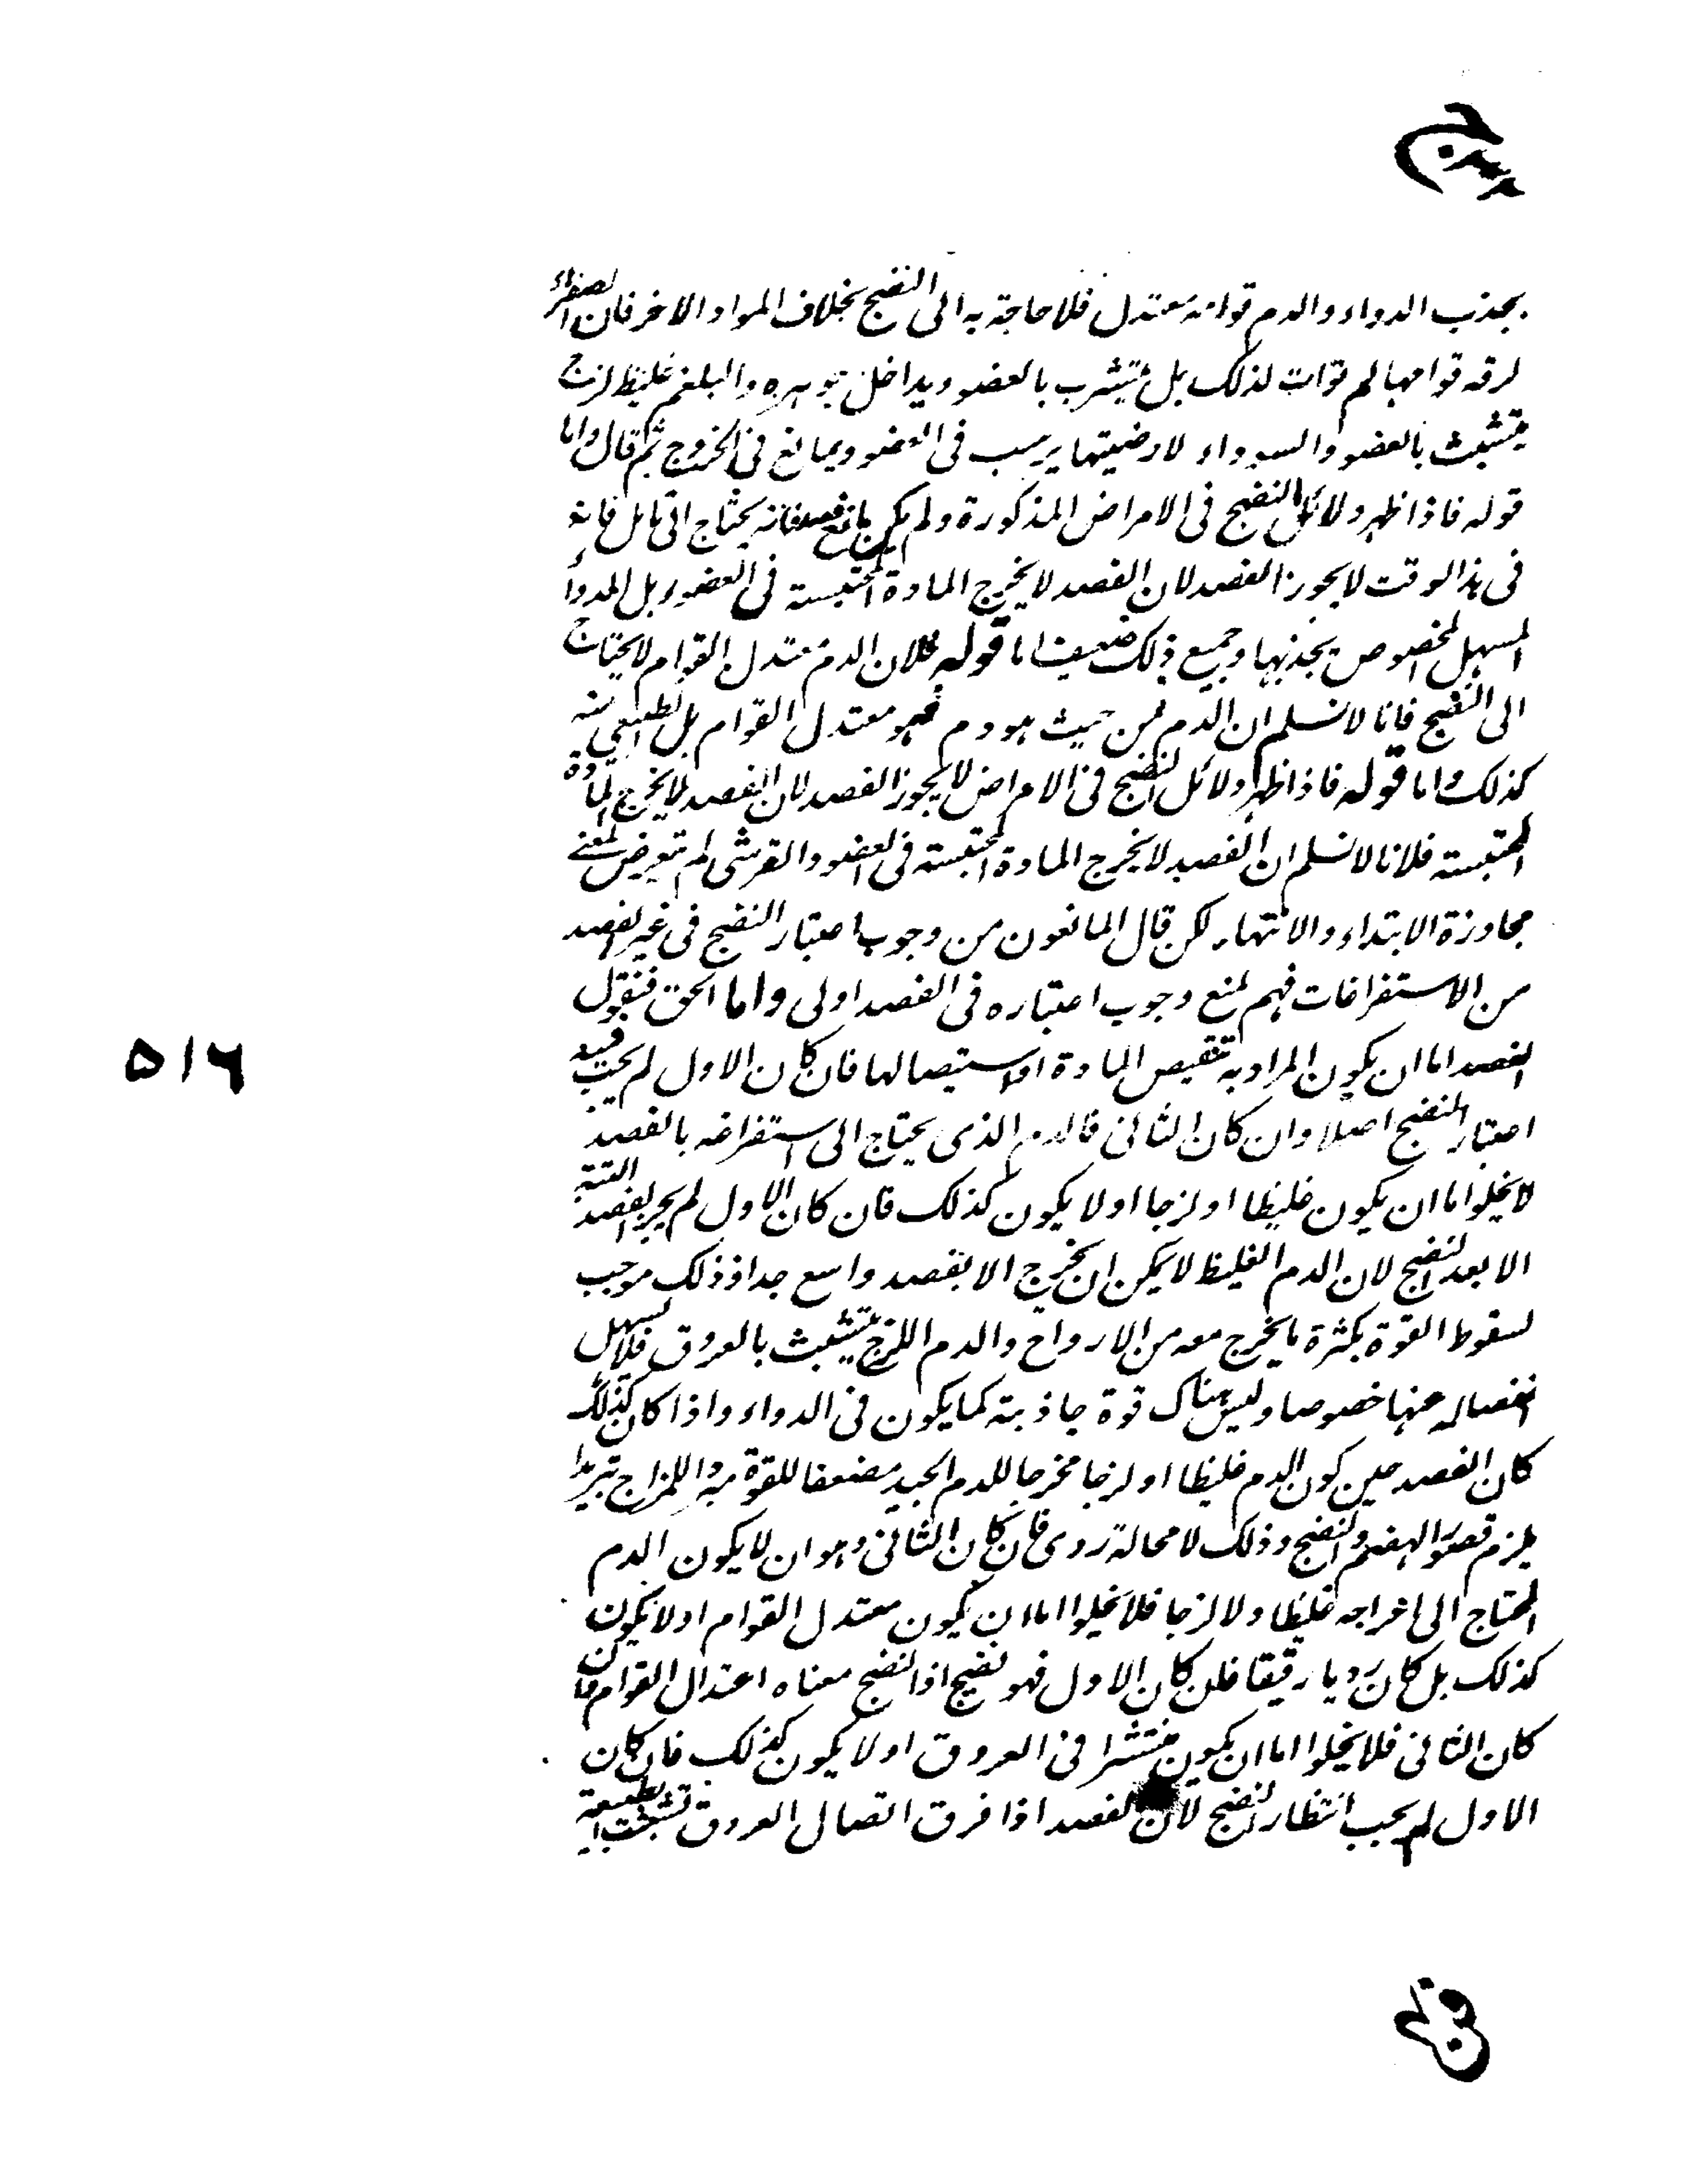 بجذب الدواء والدم قوامه معتدل فلا حاجة به الى النضج بخلاف المواد الاخر فان الصفراء
لرقه قوامها لم توات لذلك بل يتشرب بالعضو ويداخل جوهره والبلغم غليظ لزج
يتشبث بالعضو والسوداء لارضيتها يرسب فى العضو ويمانع فى الخروج ثم قال واما
قوله فاذا ظهر دلائل النضج فى الامراض المذكورة ولم يكن مانع فصد فانه يحتاج الى تامل فانه
فى هذا الوقت لا يجوز الفصد لان الفصد لا يخرج المادة المحتبسة فى العضو بل الدواء
المسهل المخصوص يجذبها وجميع ذلك ضعيف اما قوله فلان الدم معتدل القوام لا يحتاج
الى النضج فانا لا نسلم ان الدم من حيث هو دم فهو معتدل القوام بل الطبيعى منه
كذلك واما قوله فاذا ظهر دلائل النضج فى الامراض لا يجوز الفصد لان الفصد لا يخرج المادة
المحتبسة فلانا لا نسلم ان الفصد لا يخرج المادة المحتبسة فى العضو والقرشى لم يتعرض لمعنى
مجاوزة الابتداء والانتهاء لكن قال المانعون من وجوب اعتبار النضج فى غير الفصد
من الاستفراغات فهم لمنع وجوب اعتباره فى الفصد اولى واما الحق فنقول
الفصد اما ان يكون المراد به تنقيص المادة او استيصالها فان كان الاول لم يجب فيه
اعتبار النضج اصلا وان كان الثانى فالدم الذى يحتاج الى استفراغه بالفصد
لا يخلوا اما ان يكون غليظا او لزجا او لا يكون كذلك فان كان الاول لم يجز الفصد البتة
الا بعد النضج لان الدم الغليظ لا يمكن ان يخرج الا بفصد واسع جدا وذلك موجب
لسقوط القوة بكثرة ما يخرج معه من الارواح والدم اللزج يتشبث بالعروق فلا يسهل
انفصاله عنها خصوصا وليس هناك قوة جاذبة كما يكون فى الدواء واذا كان كذلك
كان الفصد حين كون الدم غليظا او لزجا مخرجا للدم الجيد مضعفا للقوة مبردا للمزاج تبريدا
يلزم قصور الهضم والنضج وذلك لا محالة ردى فان كان الثانى وهو ان لا يكون الدم
المحتاج الى اخراجه غليظا ولا لزجا فلا يخلوا اما ان يكون معتدل القوام او لا يكون
كذلك بل كان رديا رقيقا فان كان الاول فهو نضيج اذ النضج معناه اعتدال القوام فان
كان الثانى فلا يخلوا اما ان يكون منتشرا فى العروق او لا يكون كذلك فان كان
الاول لم يجب انتظار النضج لان الفصد اذا فرق اتصال العروق تشبثت الطبيعة
٥١٦